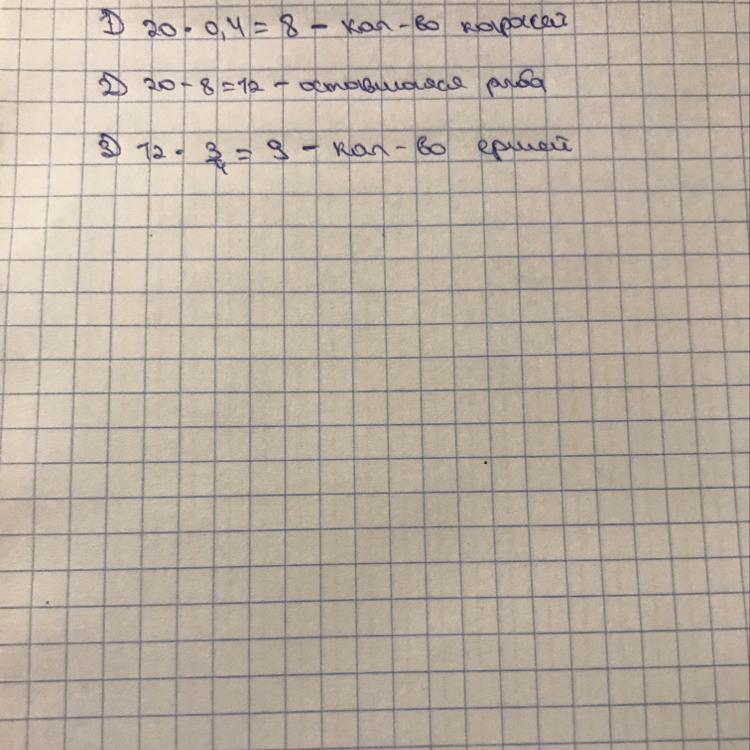 1) 20 · 0,4 = 8 - кол-во карасей
2) 20 - 8 = 12 - оставшаяся рыба
3) 12 · 3/4 = 9 - кол-во ершей